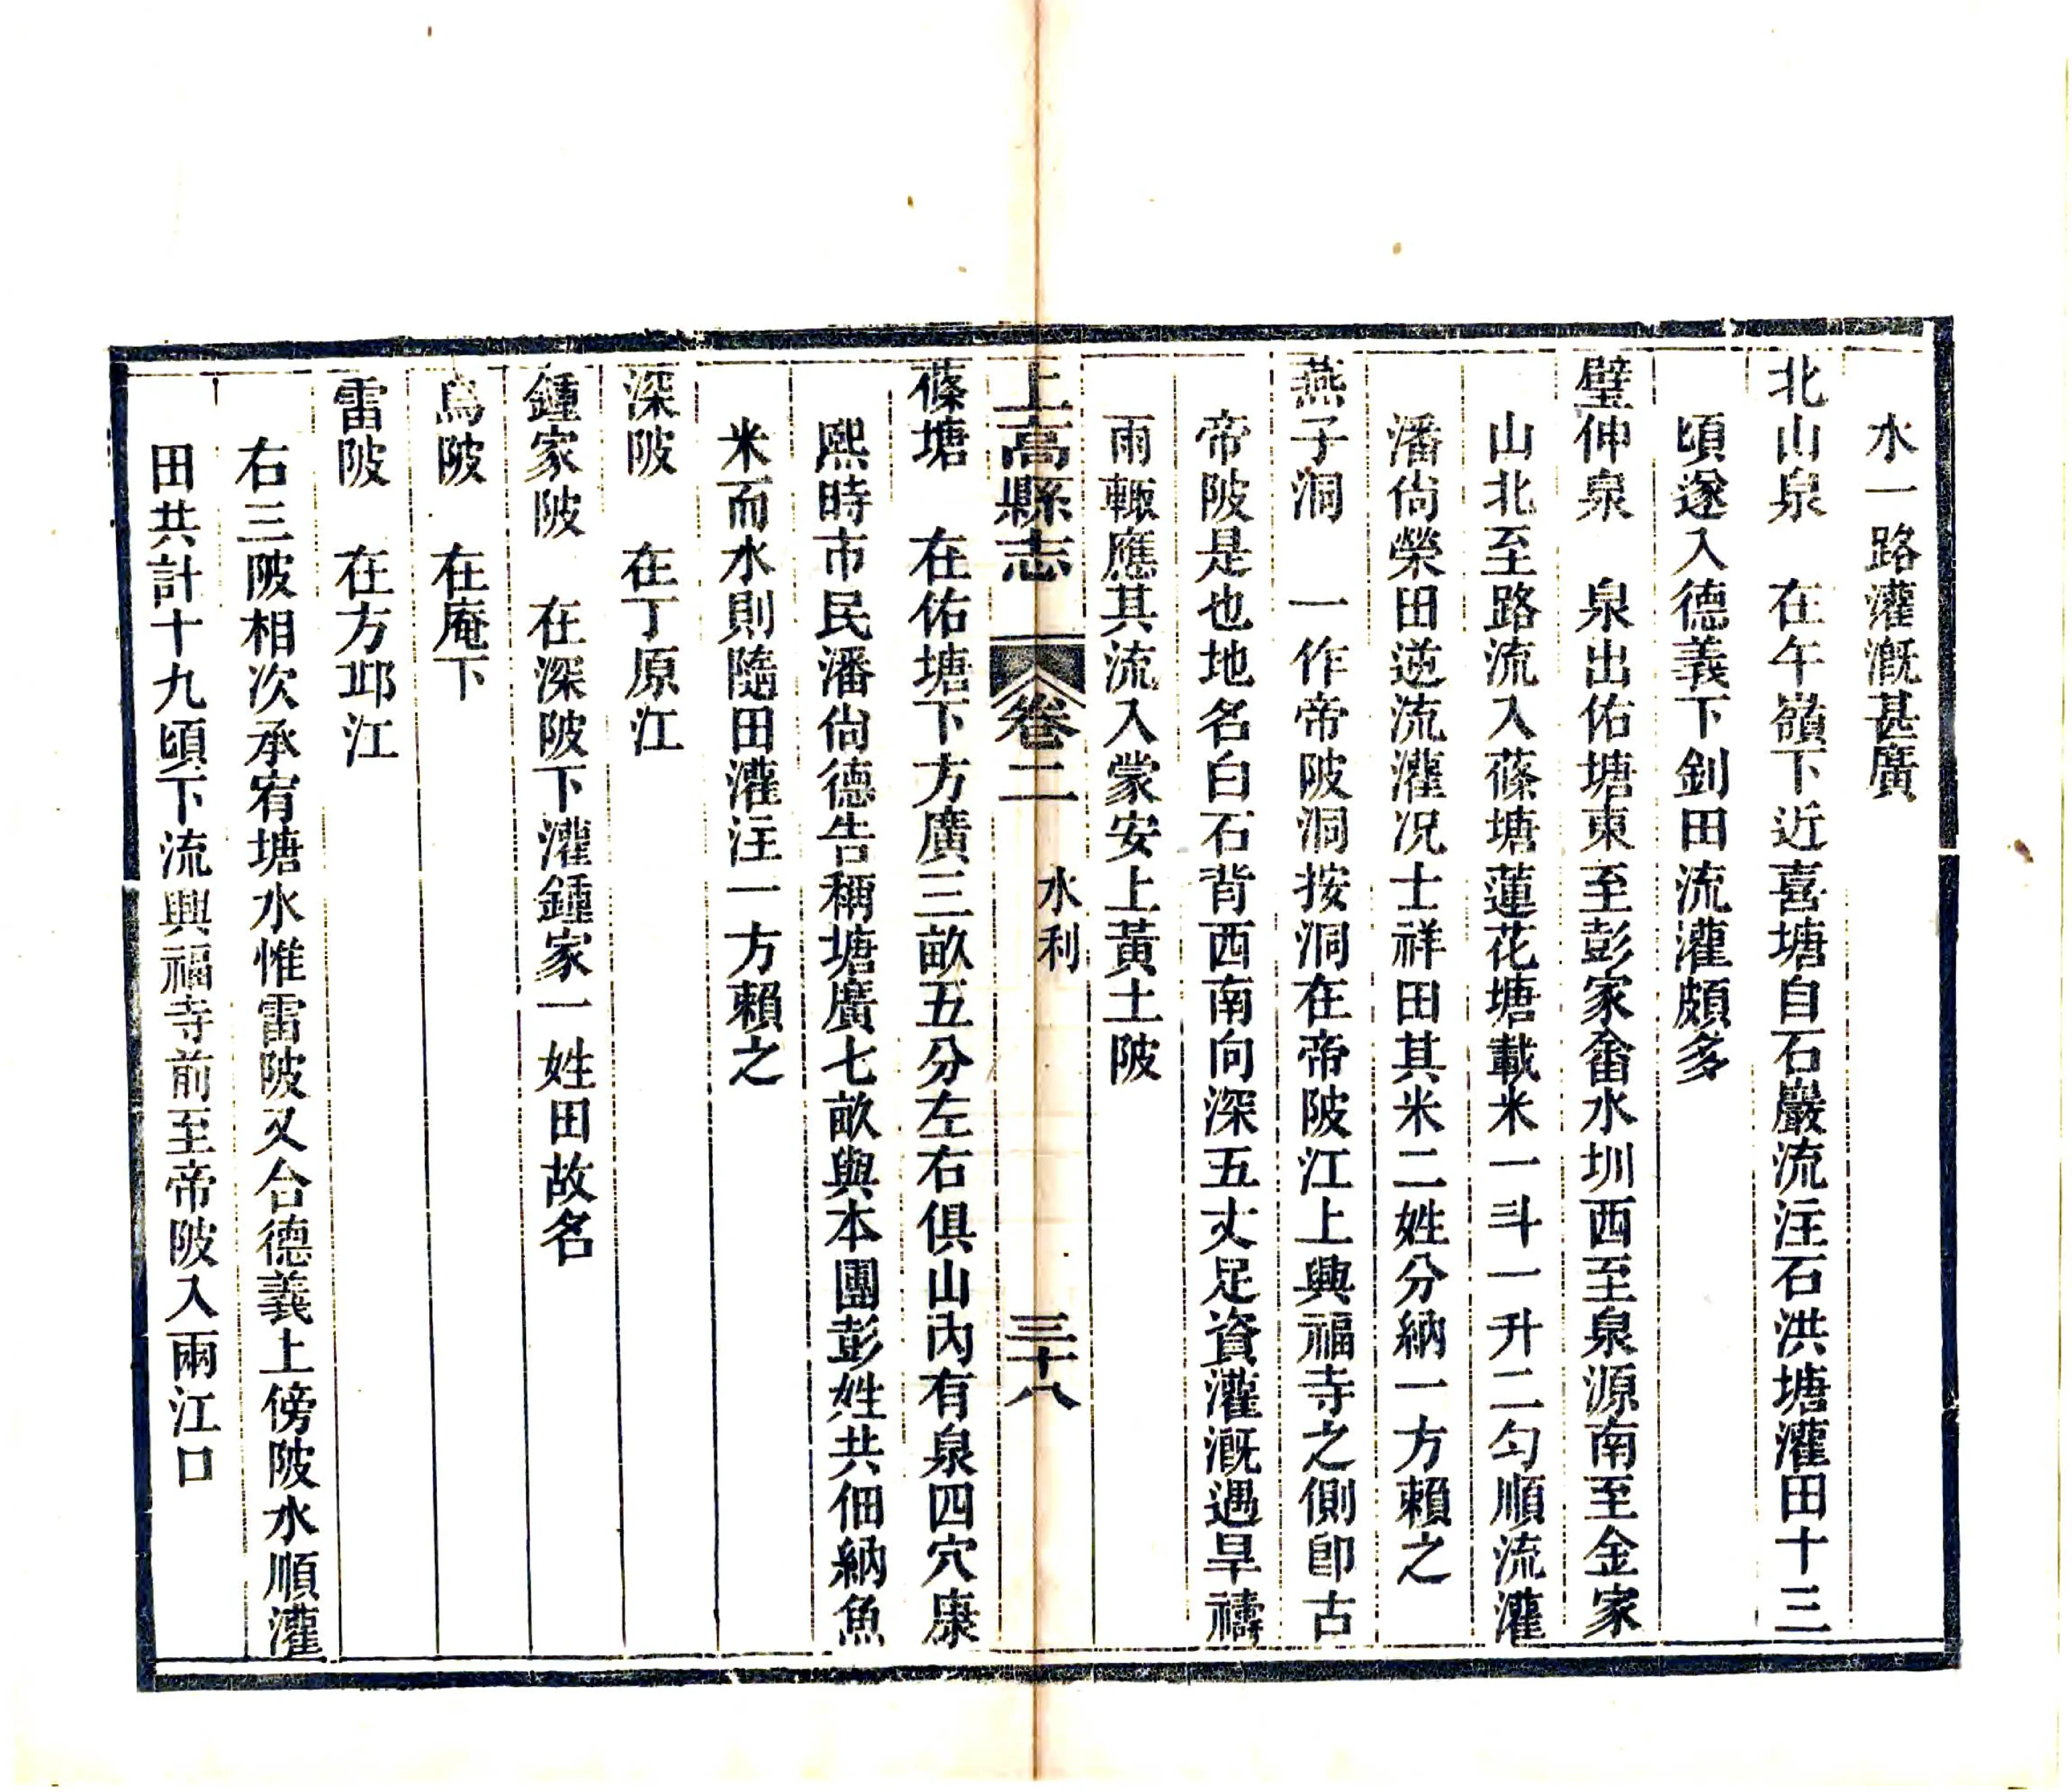 水一路灌漑甚廣
北山泉　在午嶺下近喜塘自石巖流注石洪塘灌田十三
頃遂入德義下釗田流灌頗多
璧伸泉　泉出佑塘東至彭家畬水圳西至泉源南至金家
山北至路流入蓧塘蓮花塘載米一斗一升二勺順流灌
潘尙榮田逆流灌况士祥田其米二姓分納一方賴之
燕子洞　一作帝陂洞按洞在帝陂江上興福寺之側卽古
帝陂是也地名白石背西南向深五丈足資灌漑遇旱禱
雨輙應其流入蒙安上黃土陂
上高縣志　卷二　水利　三十八
蓧塘　在佑塘下方廣三畝五分左右俱山內有泉四穴康
熙時市民潘尙德告稱塘廣七畝與本團彭姓共佃納魚
米而水則隨田灌注一方賴之
深陂　在丁原江
鍾家陂　在深陂下灌鍾家一姓田故名
烏陂　在庵下
雷陂　在方邛江
右三陂相次承宥塘水惟雷陂又合德義上傍陂水順灌
田共計十九頃下流興福寺前至帝陂入兩江口